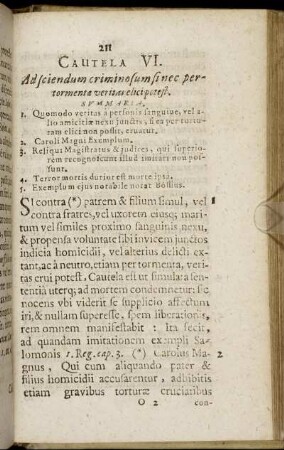 211
CAUTELA VI.
Ad sciendum criminosum si nec per-
tormenta veritas elici potest.
SUMMARIA.
1. Quomodo veritas à personis sanguine, vel a-
lio amicitiæ nexu junctis, si ea per tortu-
ram elici non possit, eruatur.
2. Caroli Magni Exemplum.
3. Reliqui Magistratus & judices, qui superio-
rem recognoscunt illud imitari non pos-
sunt.
4. Terror mortis durior est morte ipsa.
5. Exemplum ejus notabile notat Bossius.
SI contra (*) patrem & filium simul, vel 1
contra fratres, vel uxorem ejusq; mari-
tum vel similes proximo sanguinis nexu,
& propensa voluntate sibi invicem junctos
indicia homicidii, vel alterius delicti ex-
tant, ac à neutro, etiam per tormenta, veri-
tas erui potest. Cautela est ut simulata sen-
tentia uterq; ad mortem condemnetur: se
nocens ubi viderit se supplicio affectum
iri, & nullam superesse, spem liberationis,
rem omnem manifestabit : Ita fecit,
ad quandam imitationem exempli Sa-
lomonis 1. Reg. cap. 3. (*) Carolus Ma- 2
gnus, Qui cum aliquando pater &
filius homicidii accusarentur, adhibitis
etiam gravibus torturæ cruciatibus
O 2 con-